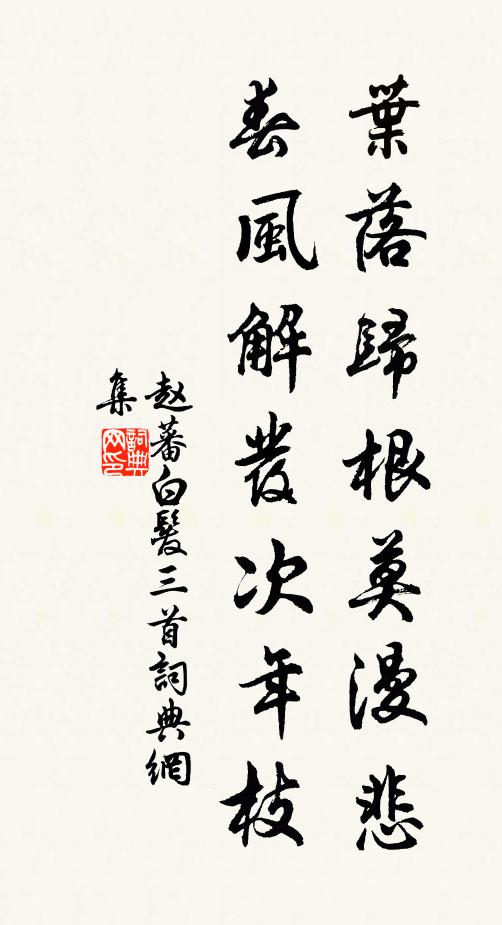 葉落歸根莫漫悲
春風解發次年枝
赵蕃白髮三首詞典網
集
詞典網印